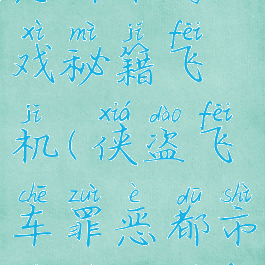 xì mì jí fēi
戏秘籍飞
jī xiá dào fēi
机(侠盗飞
chē zuì è dū shì
车罪恶都市